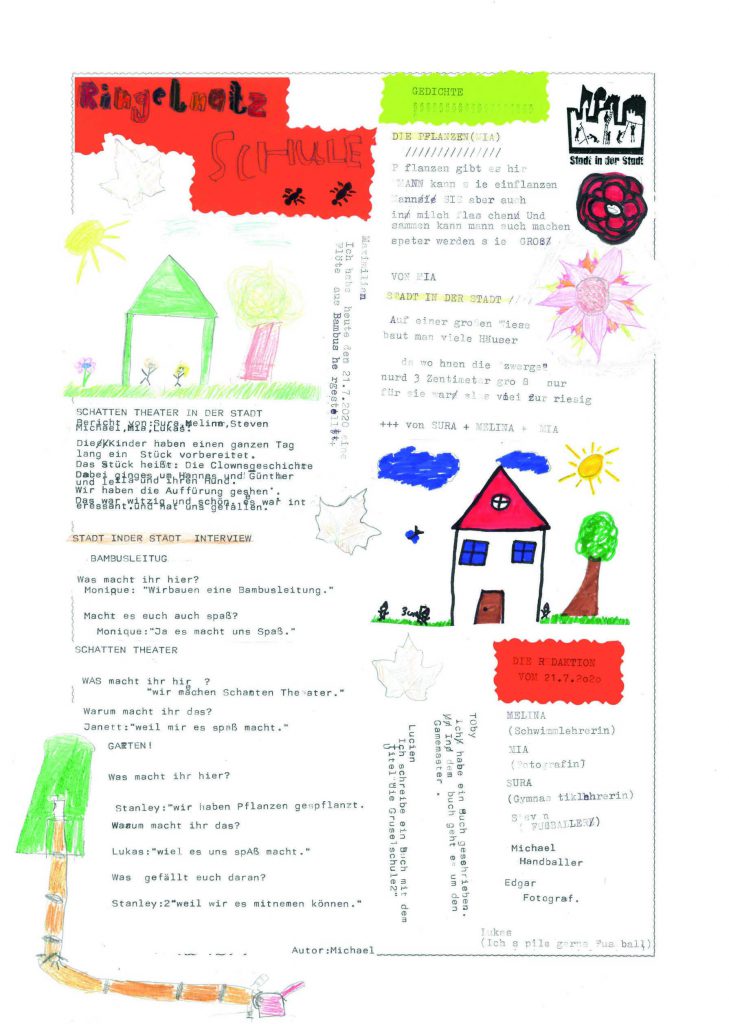 Ringelnatz
SCHULE
Maximilian
Ich habe heute den 21.7.2020 eine
Flöte aus Bambus he rgestellt.
SCHATTEN THEATER IN DER STADT
Bericht von:Sura,Melina,Steven
Michael,Mia,Lukas.
Die Kinder haben einen ganzen Tag
lang ein Stück vorbereitet.
Das Stück heißt: Die Clownsgeschichte
Dabei ginges um Hannes und Günther
und leila und ihren Hund.
Wir haben die Auffürung gesehen.
Das war witzig und schön. es war int
eressant.und hat uns gefallen.
STADT INDER STADT INTERVIEW
BAMBUSLEITUG
Was macht ihr hier?
Monique: "Wirbauen eine Bambusleitung."
Macht es euch auch spaß?
Monique:"Ja es macht uns Spaß."
SCHATTEN THEATER
WAS macht ihr hier ?
"wir machen Schatten Theater."
Warum macht ihr das?
Janett:"weil mir es spaß macht."
GARTEN!
Was macht ihr hier?
Stanley:"wir haben Pflanzen gepflanzt.
Warum macht ihr das?
Lukas:"wiel es uns spAß macht."
Was gefällt euch daran?
Stanley:2"weil wir es mitnemen können."
Autor:Michael
GEDICHTE
DIE PFLANZEN(MIA)
///////////////
P flanzen gibt es hir
MANN kann s ie einflanzen
Mann SIE aber auch
in milch flas chen Und
sammen kann mann auch machen
speter werden s ie GROß
VON MIA
STADT IN DER STADT //
Auf einer großen Wiese
baut man viele Häuser
da wo hnen die "zwerge"
nurd 3 Zentimeter gro ß nur
für sie war al s viel zur riesig
+++ von SURA + MELINA + MIA
Stadt in der Stadt
3cm
Töby
Ich habe ein Buch geschrieben.
In dem buch geht es um den
Gamemaster .
Lucien
Ich schreibe ein Buch mit dem
Titel"die Gruselschule2"
DIE R DAKTION
VOM 21.7.2020
MELINA
(Schwimmlehrerin)
MIA
(Fotografin)
SURA
(Gymnas tiklehrerin)
Stev n
( FUSSBALLER)
Michael
Handballer
Edgar
Fotograf.
lukas
(Ich s pile gerne Fus ball)